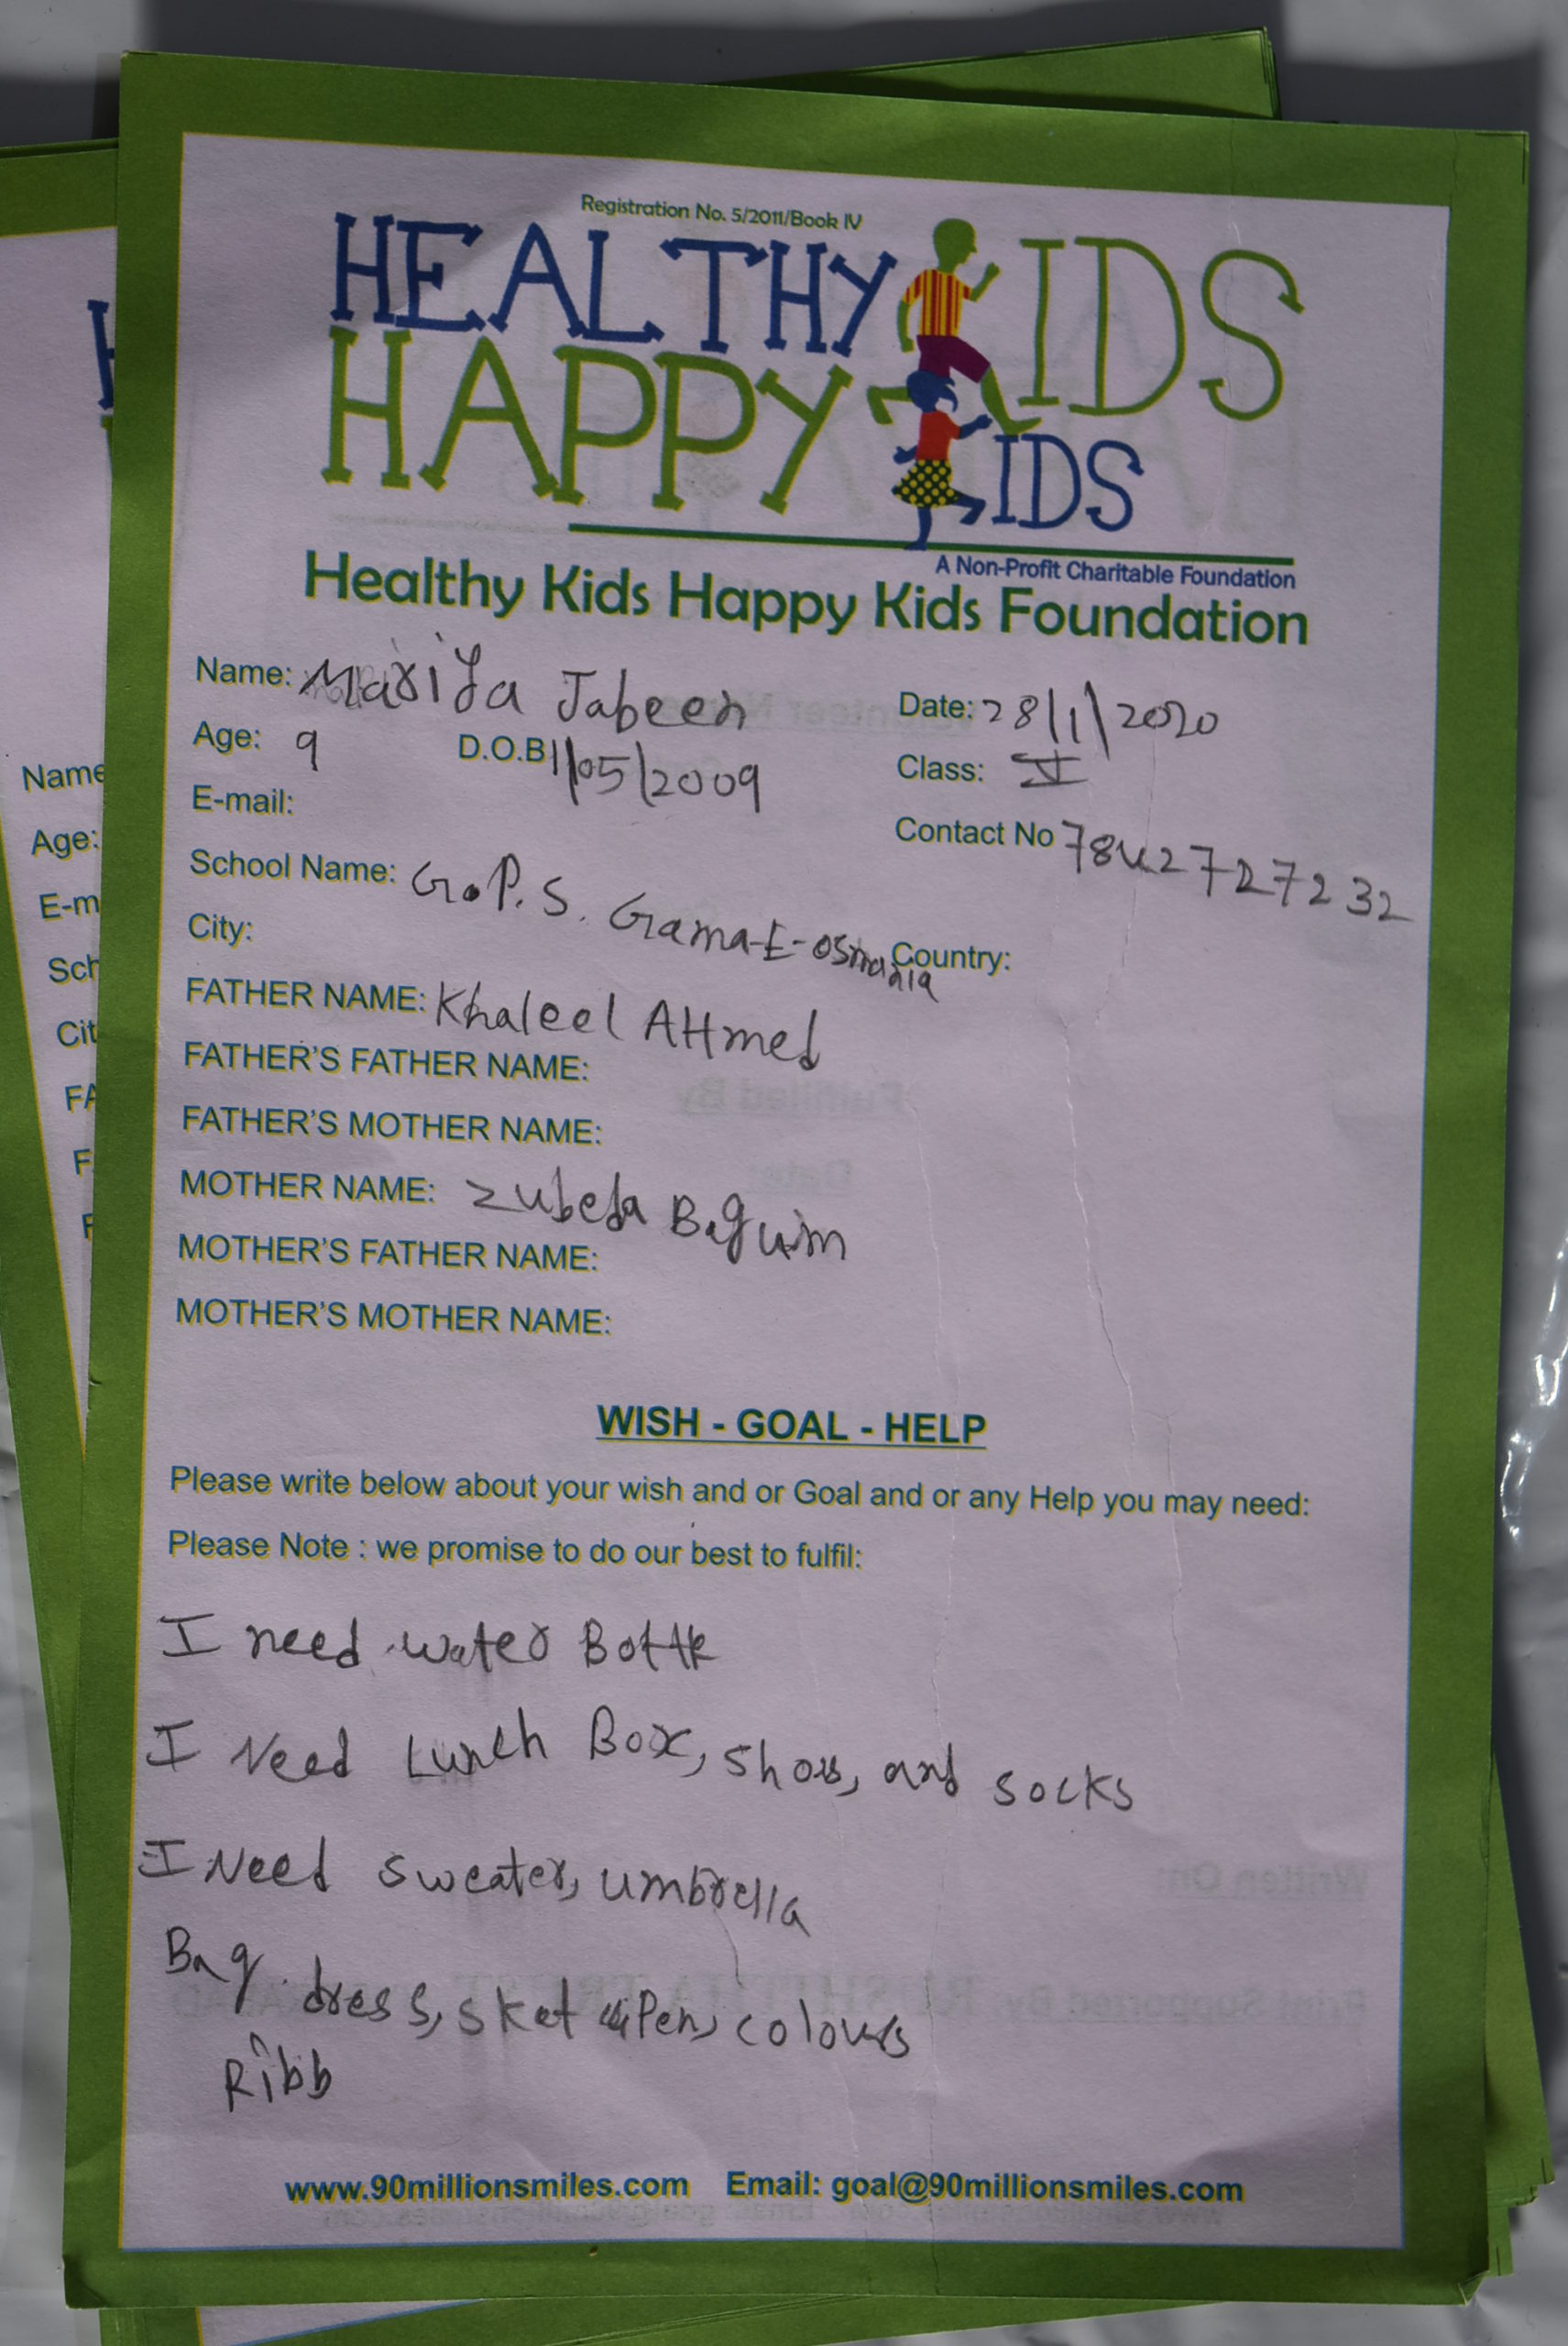 Registration No. 5/2011/Book IV
HEALTHY KIDS
HAPPY KIDS
A Non-Profit Charitable Foundation
Healthy Kids Happy Kids Foundation
Name: Mariya Jabeen Date: 28/1/2020
Age: 9 D.O.B 1/05/2009 Class: V
E-mail: Contact No 7842727232
School Name: G.P.S. Grama-E-osmania
City: Country:
FATHER NAME: Khaleel AHmed
FATHER'S FATHER NAME:
FATHER'S MOTHER NAME:
MOTHER NAME: Zubeda Beguim
MOTHER'S FATHER NAME:
MOTHER'S MOTHER NAME:
WISH - GOAL - HELP
Please write below about your wish and or Goal and or any Help you may need:
Please Note : we promise to do our best to fulfil:
I need water Bottle
I Need Lunch Box, shoes, and socks
I Need sweater, umbrella
Bag dress, sket Pen, colours
Ribb
www.90millionsmiles.com Email: goal@90millionsmiles.com
Name
Age:
E-m
Sch
Cit
FA
F
F